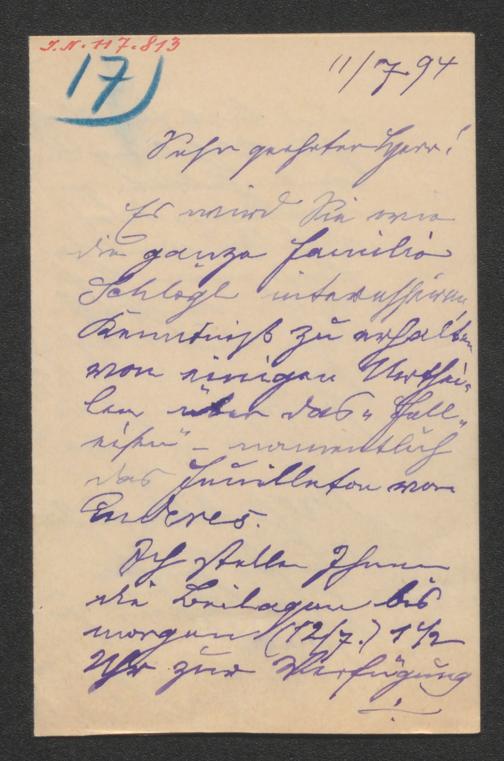 I.N. 117.813
17)
11/7.94
Sehr geehrter Herr!
Es wird Sie wie
die ganze Familie
Schlögl interessieren,
Kenntniß zu erhalten
von einigen Urthei-
len über das „Fell-
eisen“ – namentlich
das Feuilleton von
Enderes.
Ich stelle Ihnen
die Beilagen bis
morgen (12/7.) 1 1/2
Uhr zur Verfügung